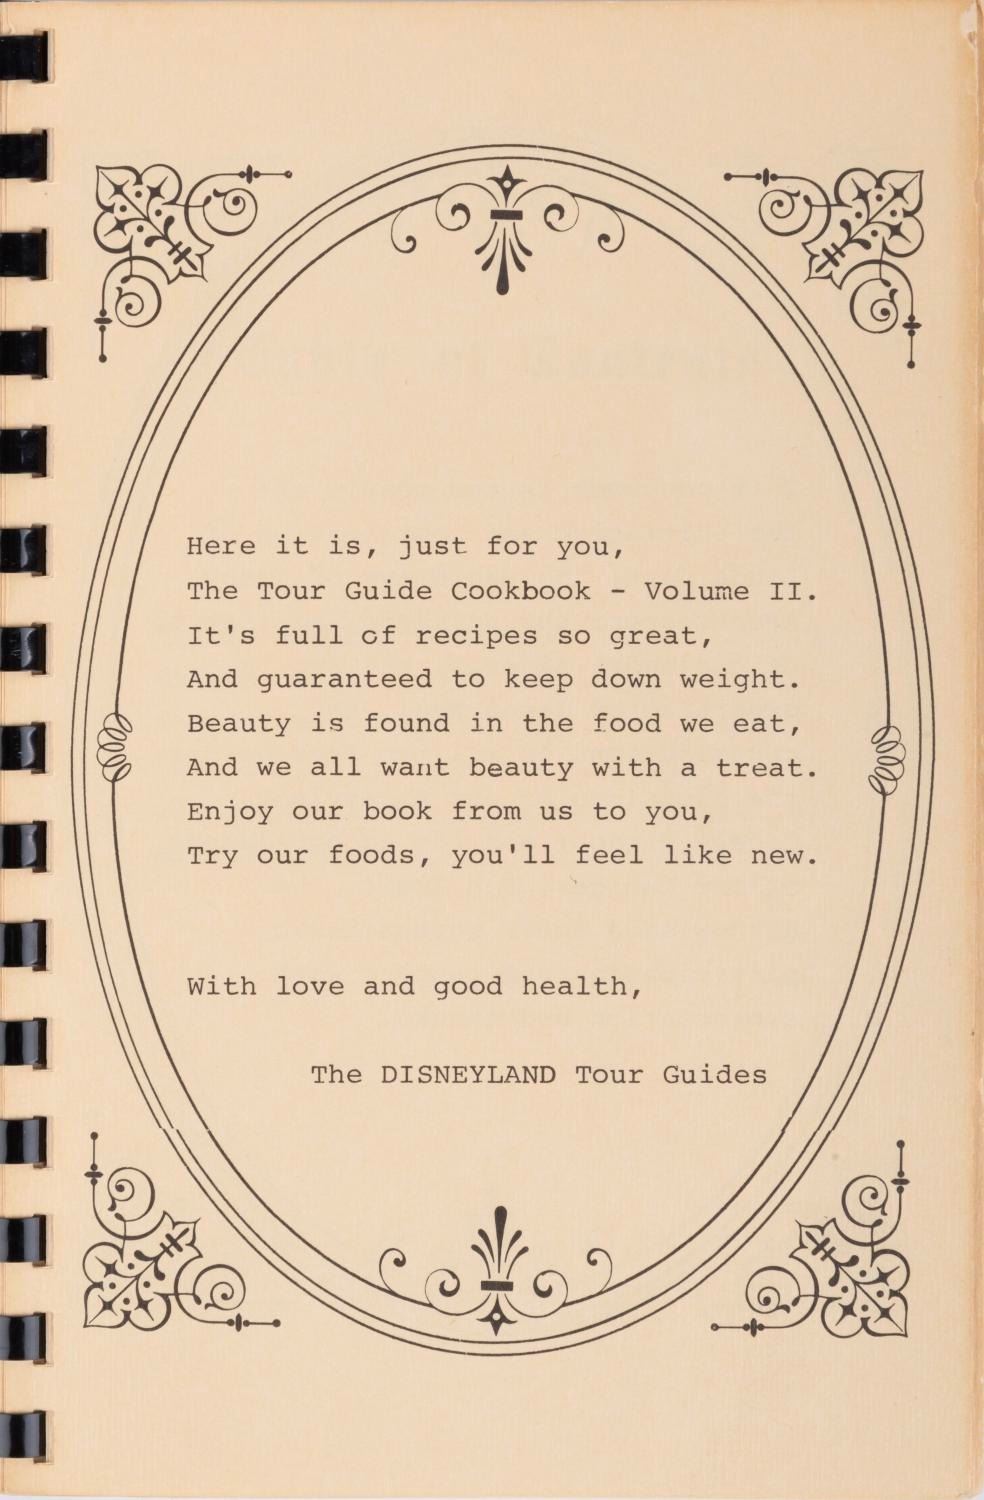 Here it is, just for you,
The Tour Guide Cookbook - Volume II.
It's full of recipes so great,
And guaranteed to keep down weight.
Beauty is found in the food we eat,
And we all want beauty with a treat.
Enjoy our book from us to you,
Try our foods, you'll feel like new.
With love and good health,
The DISNEYLAND Tour Guides